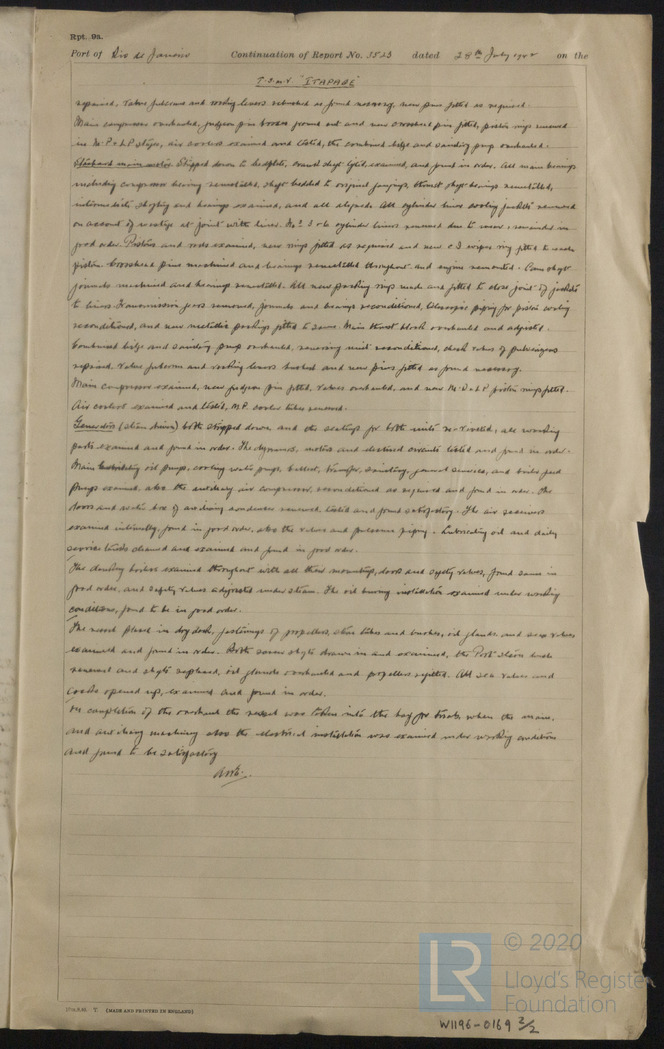 Rpt. 9a.
Port of Rio de Janeiro Continuation of Report No. 3523 dated 28th July 19 on the
T.S.M.V. "ITAPAGE"
repaired, valve fulcrums and rocking levers rebushed as found necessary, new pins fitted as required.
Main compressor overhauled, gudgeon pin brasses found out and new crosshead pin fitted, piston rings renewed
in M.P. & L.P. stages, air coolers examined and tested, the combined bilge and sanitary pump overhauled.
Starboard main motor. Stripped down to bedplate, crank shaft lifted, examined, and found in order. All main bearings
including compressor bearing remetalled, shaft bedded to original gaugings, thrust shaft bearings remetalled,
intermediate shafting and bearings examined, and all aligned. All cylinder liners cooling jackets renewed
on account of wastage at joint with liner. Nos 3 & 6 cylinder liners renewed due to wear, remainder in
good order. Pistons and rods examined, new rings fitted as required and new C.I. wiper ring fitted to each
piston. Crosshead pins machined and bearings remetalled throughout and engine remounted. Cam shaft
journals machined and bearings remetalled. All new packing rings made and fitted to close joint of jackets
to liners. Transmission gears removed, journals and bearings reconditioned, telescopic piping for piston cooling
reconditioned, and new metallic packings fitted to same. Main thrust block overhauled and adjusted.
Combined bilge and sanitary pump overhauled, reversing unit reconditioned, check valves of pulverizers
repaired, valve fulcrum and rocking levers bushed and new pins fitted as found necessary.
Main compressor examined, new gudgeon pin fitted, valves overhauled, and new M.P. & L.P. piston rings fitted.
Air coolers examined and tested, M.P. cooler tubes renewed.
Generators (steam driven) both stripped down, and the seatings for both units re-riveted, all working
parts examined and found in order. The dynamos, motors and electrical circuits tested and found in order.
Main lubricating oil pumps, cooling water pumps, ballast, transfer, sanitary, general service, and boiler feed
pumps examined, also the auxiliary air compressor, reconditioned as required and found in order. The
doors and water box of auxiliary condenser renewed, tested and found satisfactory. The air receivers
examined internally, found in good order, also the valves and pressure piping. Lubricating oil and daily
service tanks cleaned and examined and found in good order.
The donkey boilers examined throughout with all their mountings, doors and safety valves, found same in
good order, and safety valves adjusted under steam. The oil burning installation examined under working
conditions, found to be in good order.
The vessel placed in dry dock, fastenings of propellers, stern tubes and bushes, oil glands and sea valves
examined and found in order. Both screw shafts drawn in and examined, the Port stern bush
renewed and shafts replaced, oil glands overhauled and propellers refitted. All sea valves and
cocks opened up, examined and found in order.
On completion of the overhaul the vessel was taken into the bay for trials, when the main,
and auxiliary machinery also the electrical installation was examined under working conditions
and found to be satisfactory
T. (MADE AND PRINTED IN ENGLAND)
LR
© 2020
Lloyd's Register
Foundation
W1196-0169 2/2